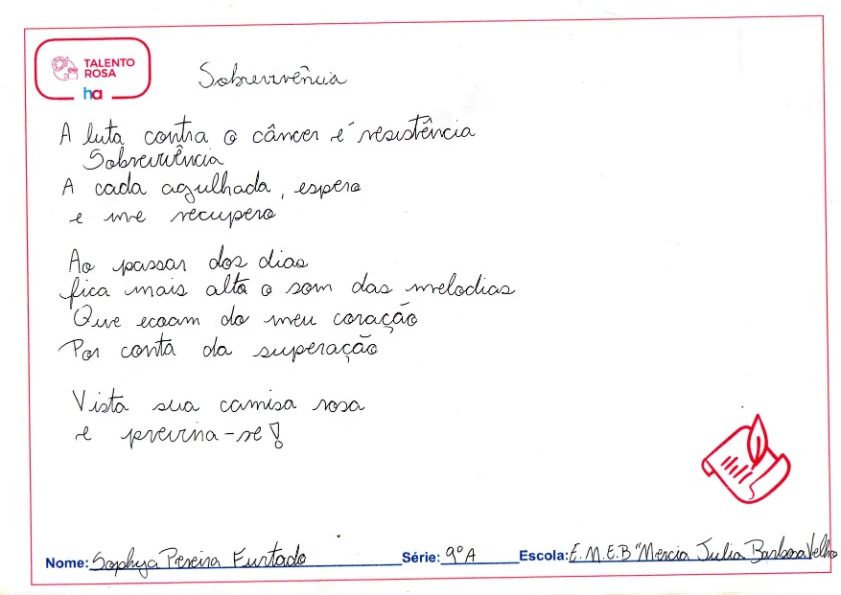 TALENTO
ROSA
ha
Sobrevivência
A luta contra o câncer é resistência
Sobrevivência
A cada agulhada, espero
e me recupero
Ao passar dos dias
fica mais alto o som das melodias
Que ecoam do meu coração
Por conta da superação
Vista sua camisa rosa
e previna-se!
Nome: Sophya Pereira Furtado Série: 9º A Escola: E.M.E.B "Mercia Julia Barbosa Velho